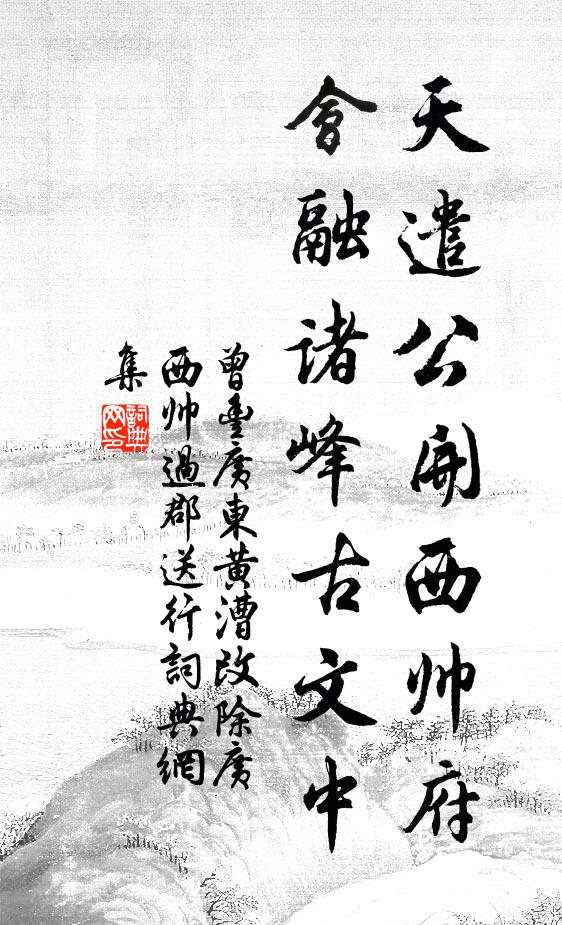 天遣公開西帅府
會融诸峰古文中
曾豊廣東黄漕改除廣
西帅過郡送行詞典網
集
詞典
网印